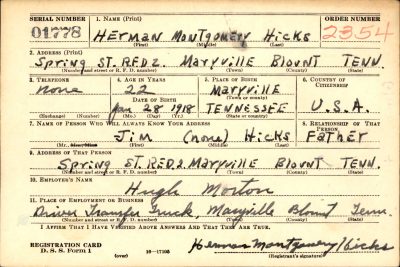 SERIAL NUMBER 1. NAME (Print) ORDER NUMBER
01778 HERMAN MONTGOMERY HICKS 2354
(First) (Middle) (Last)
2. ADDRESS (Print)
SPring ST. RED 2. MARYVILLE BLOUNT TENN.
(Number and street or R. F. D. number) (Town) (County) (State)
3. TELEPHONE 4. AGE IN YEARS 5. PLACE OF BIRTH 6. COUNTRY OF CITIZENSHIP
none 22 MARYVILLE
DATE OF BIRTH (Town or county)
Jan 28 1918 TENNESSEE U.S.A.
(Exchange) (Number) (Mo.) (Day) (Yr.) (State or country)
7. NAME OF PERSON WHO WILL ALWAYS KNOW YOUR ADDRESS 8. RELATIONSHIP OF THAT PERSON
JIM (none) HICKS FATHER
(First) (Middle) (Last)
9. ADDRESS OF THAT PERSON
SPring ST. RED 2. MARYVILLE BLOUNT TENN.
(Number and street or R. F. D. number) (Town) (County) (State)
10. EMPLOYER'S NAME
Hugh Morton
11. PLACE OF EMPLOYMENT OR BUSINESS
Driver Transfer Truck, Maryville Blount Tenn.
(Number and street or R. F. D. number) (Town) (County) (State)
I AFFIRM THAT I HAVE VERIFIED ABOVE ANSWERS AND THAT THEY ARE TRUE.
REGISTRATION CARD
D. S. S. Form 1 (over) 16-17105 Herman Montgomery Hicks
(Registrant's signature)